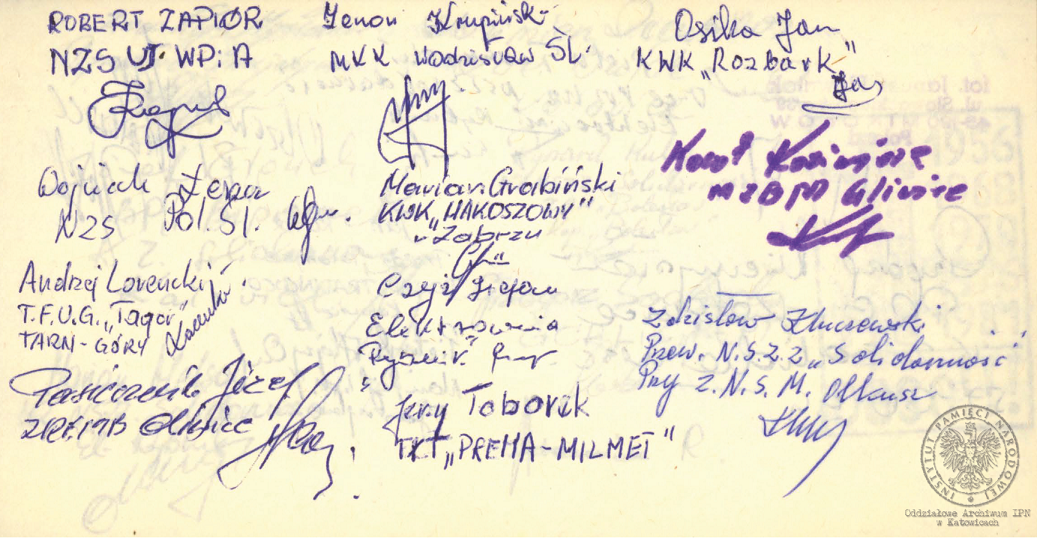 ROBERT ZAPIÓR
NZS UJ WPiA
Zenon Krupiński
MKK Wodzisław ŚL.
Osika Jan
KWK „Rozbark"
Wojciech
NZS Pol. Śl.
Marian Grabiński
KWK „MAKOSZOWY"
w Zabrzu
Kazimierz
MZBM Gliwice
Andrzej Lorencki
T.F.U.G. „Tagor"
TARN-GÓRY
Czyż Stefan
Elektrownia
Rybnik
Zdzisław Kluczewski
Przew. N.S.Z.Z „Solidarność"
Przy Z.N.S.M. Olkusz
Józef
Gliwice
Jerzy Taborek
TKT „PREMA-MILMET"
INSTYTUT PAMIĘCI NARODOWEJ
Oddziałowe Archiwum IPN
w Katowicach